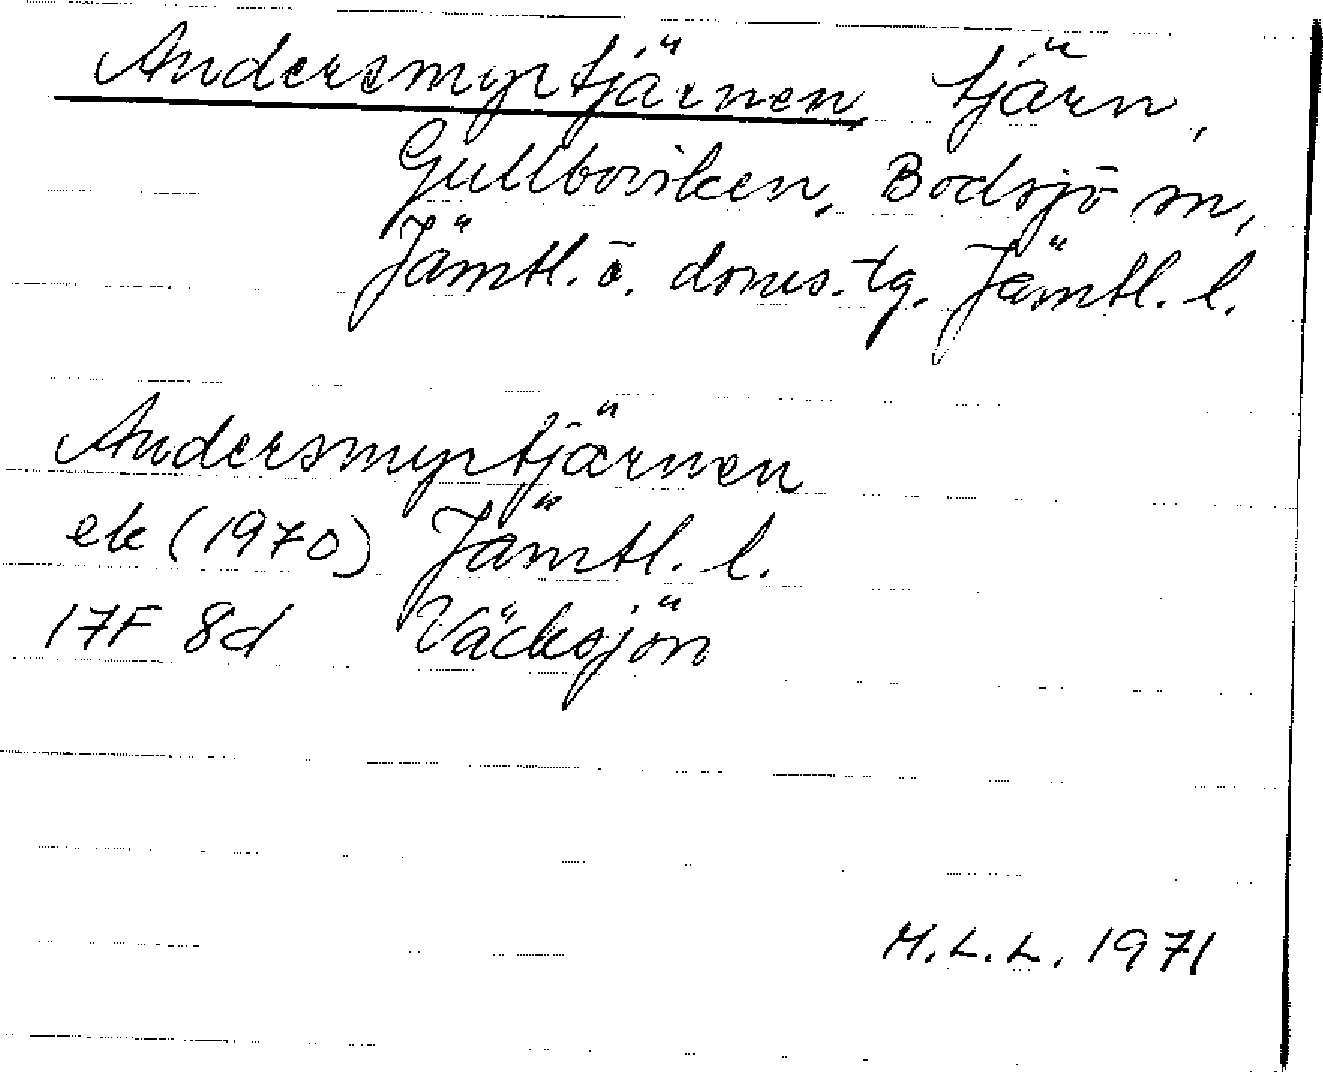 Andersmyrtjärnen tjärn,
Gullboviken, Bodsjö sn,
Jämtl. ö. doms. tg. Jämtl. l.
Andersmyrtjärnen
ek (1970) Jämtl. l.
17F 8d Väcksjön
M.L.L. 1971